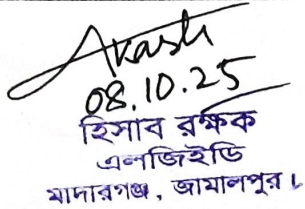 Akash
08.10.25
হিসাব রক্ষক
এলজিইডি
মাদারগঞ্জ, জামালপুর।